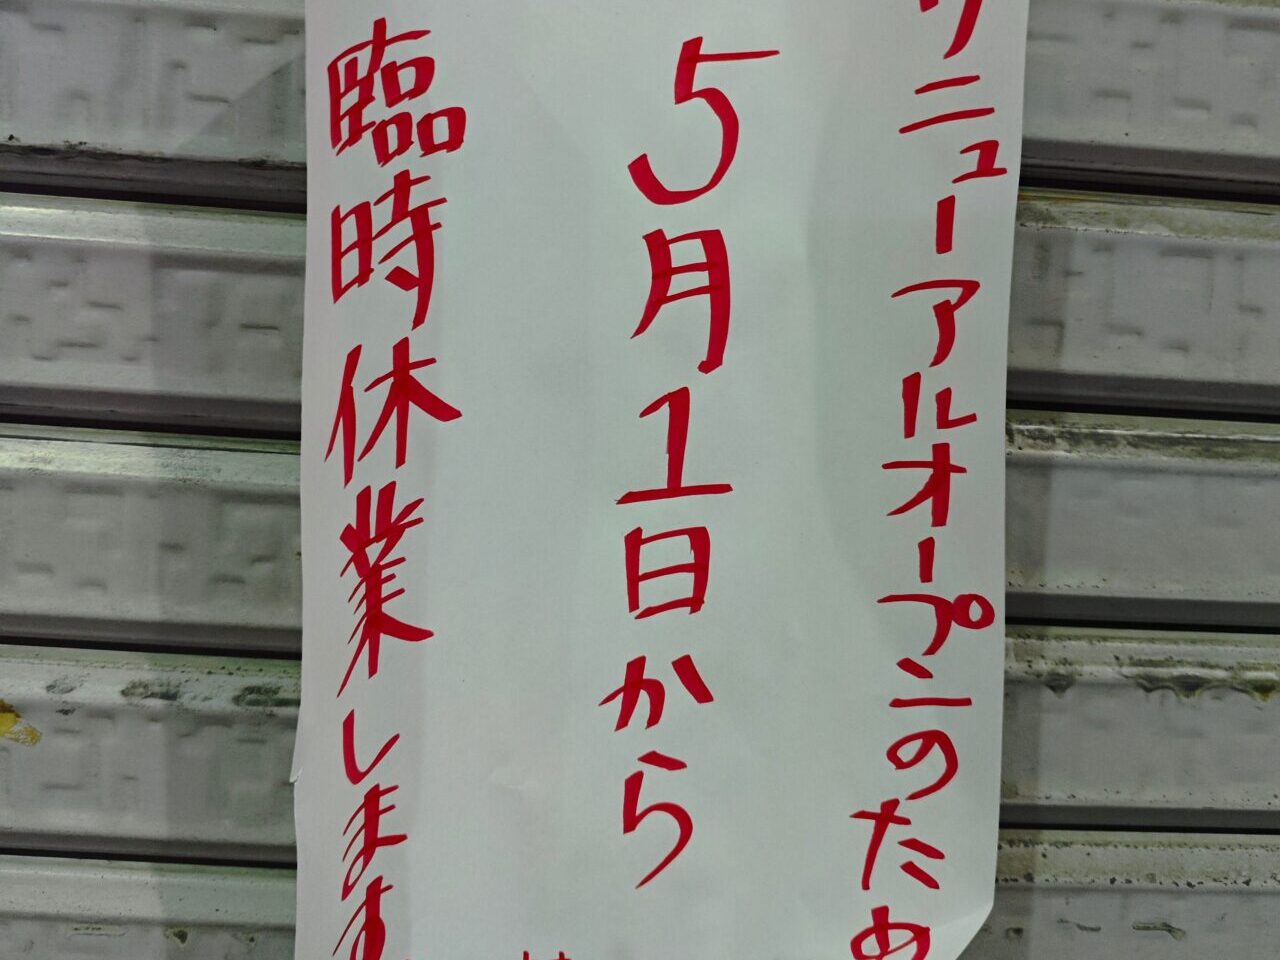 リニューアルオープンのため
5月1日から
臨時休業します